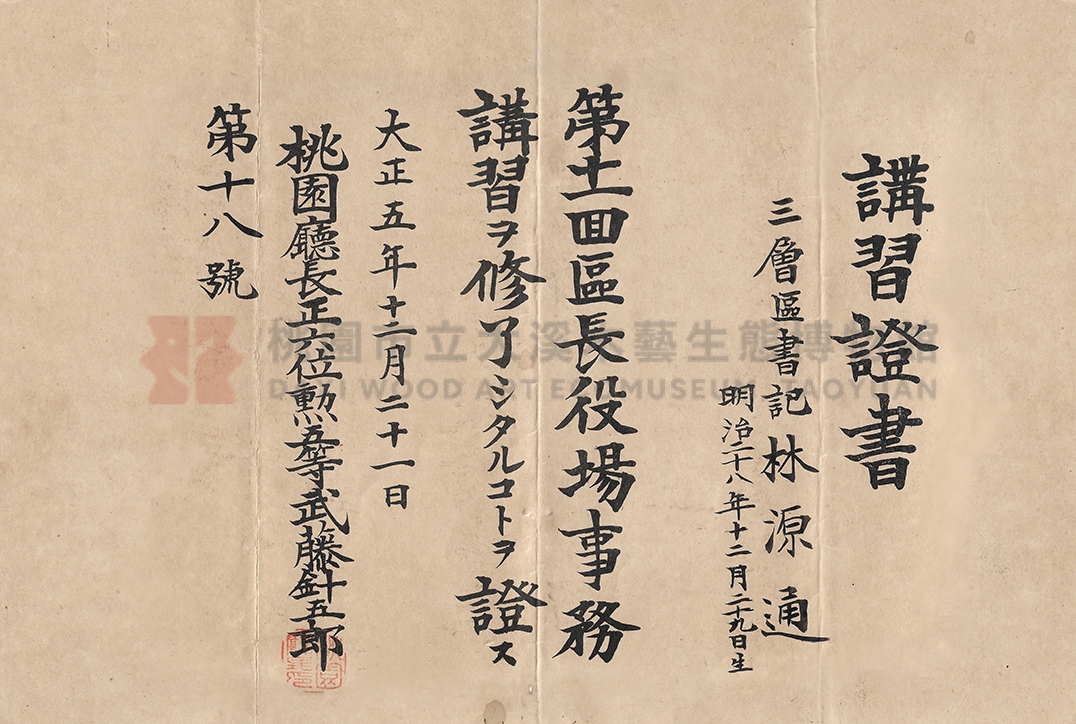 講習證書
三層區書記 林源通
明治二十八年十二月二十九日生
第十一回區長役場事務
講習ヲ修了シタルコトヲ證ス
大正五年十二月二十一日
桃園廳長正六位勲五等武藤針五郎
第十八號
桃園市立大溪木藝生態博物館
DAXI WOOD ART ECOMUSEUM, TAOYUAN